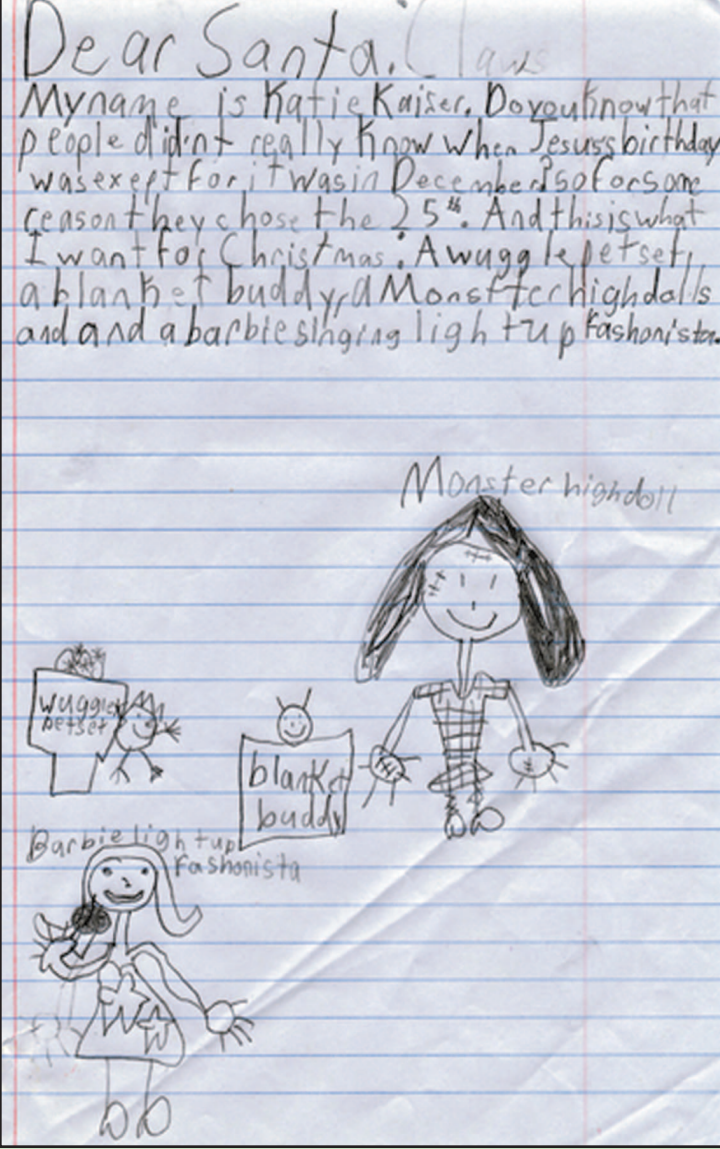 Dear Santa. Claws
My name is Katie Kaiser. Do you know that
people didn't really know when Jesus's birthday
was exept for it was in December? so for some
reason they chose the 25th. And this is what
I want for Christmas: A wuggle pet set,
a blanket buddy, a Monstter high dolls
and and a barbie singing light up Fashonista.
Monster high doll
wuggle
pet set
blanket
buddy
Barbie light up
Fashonista